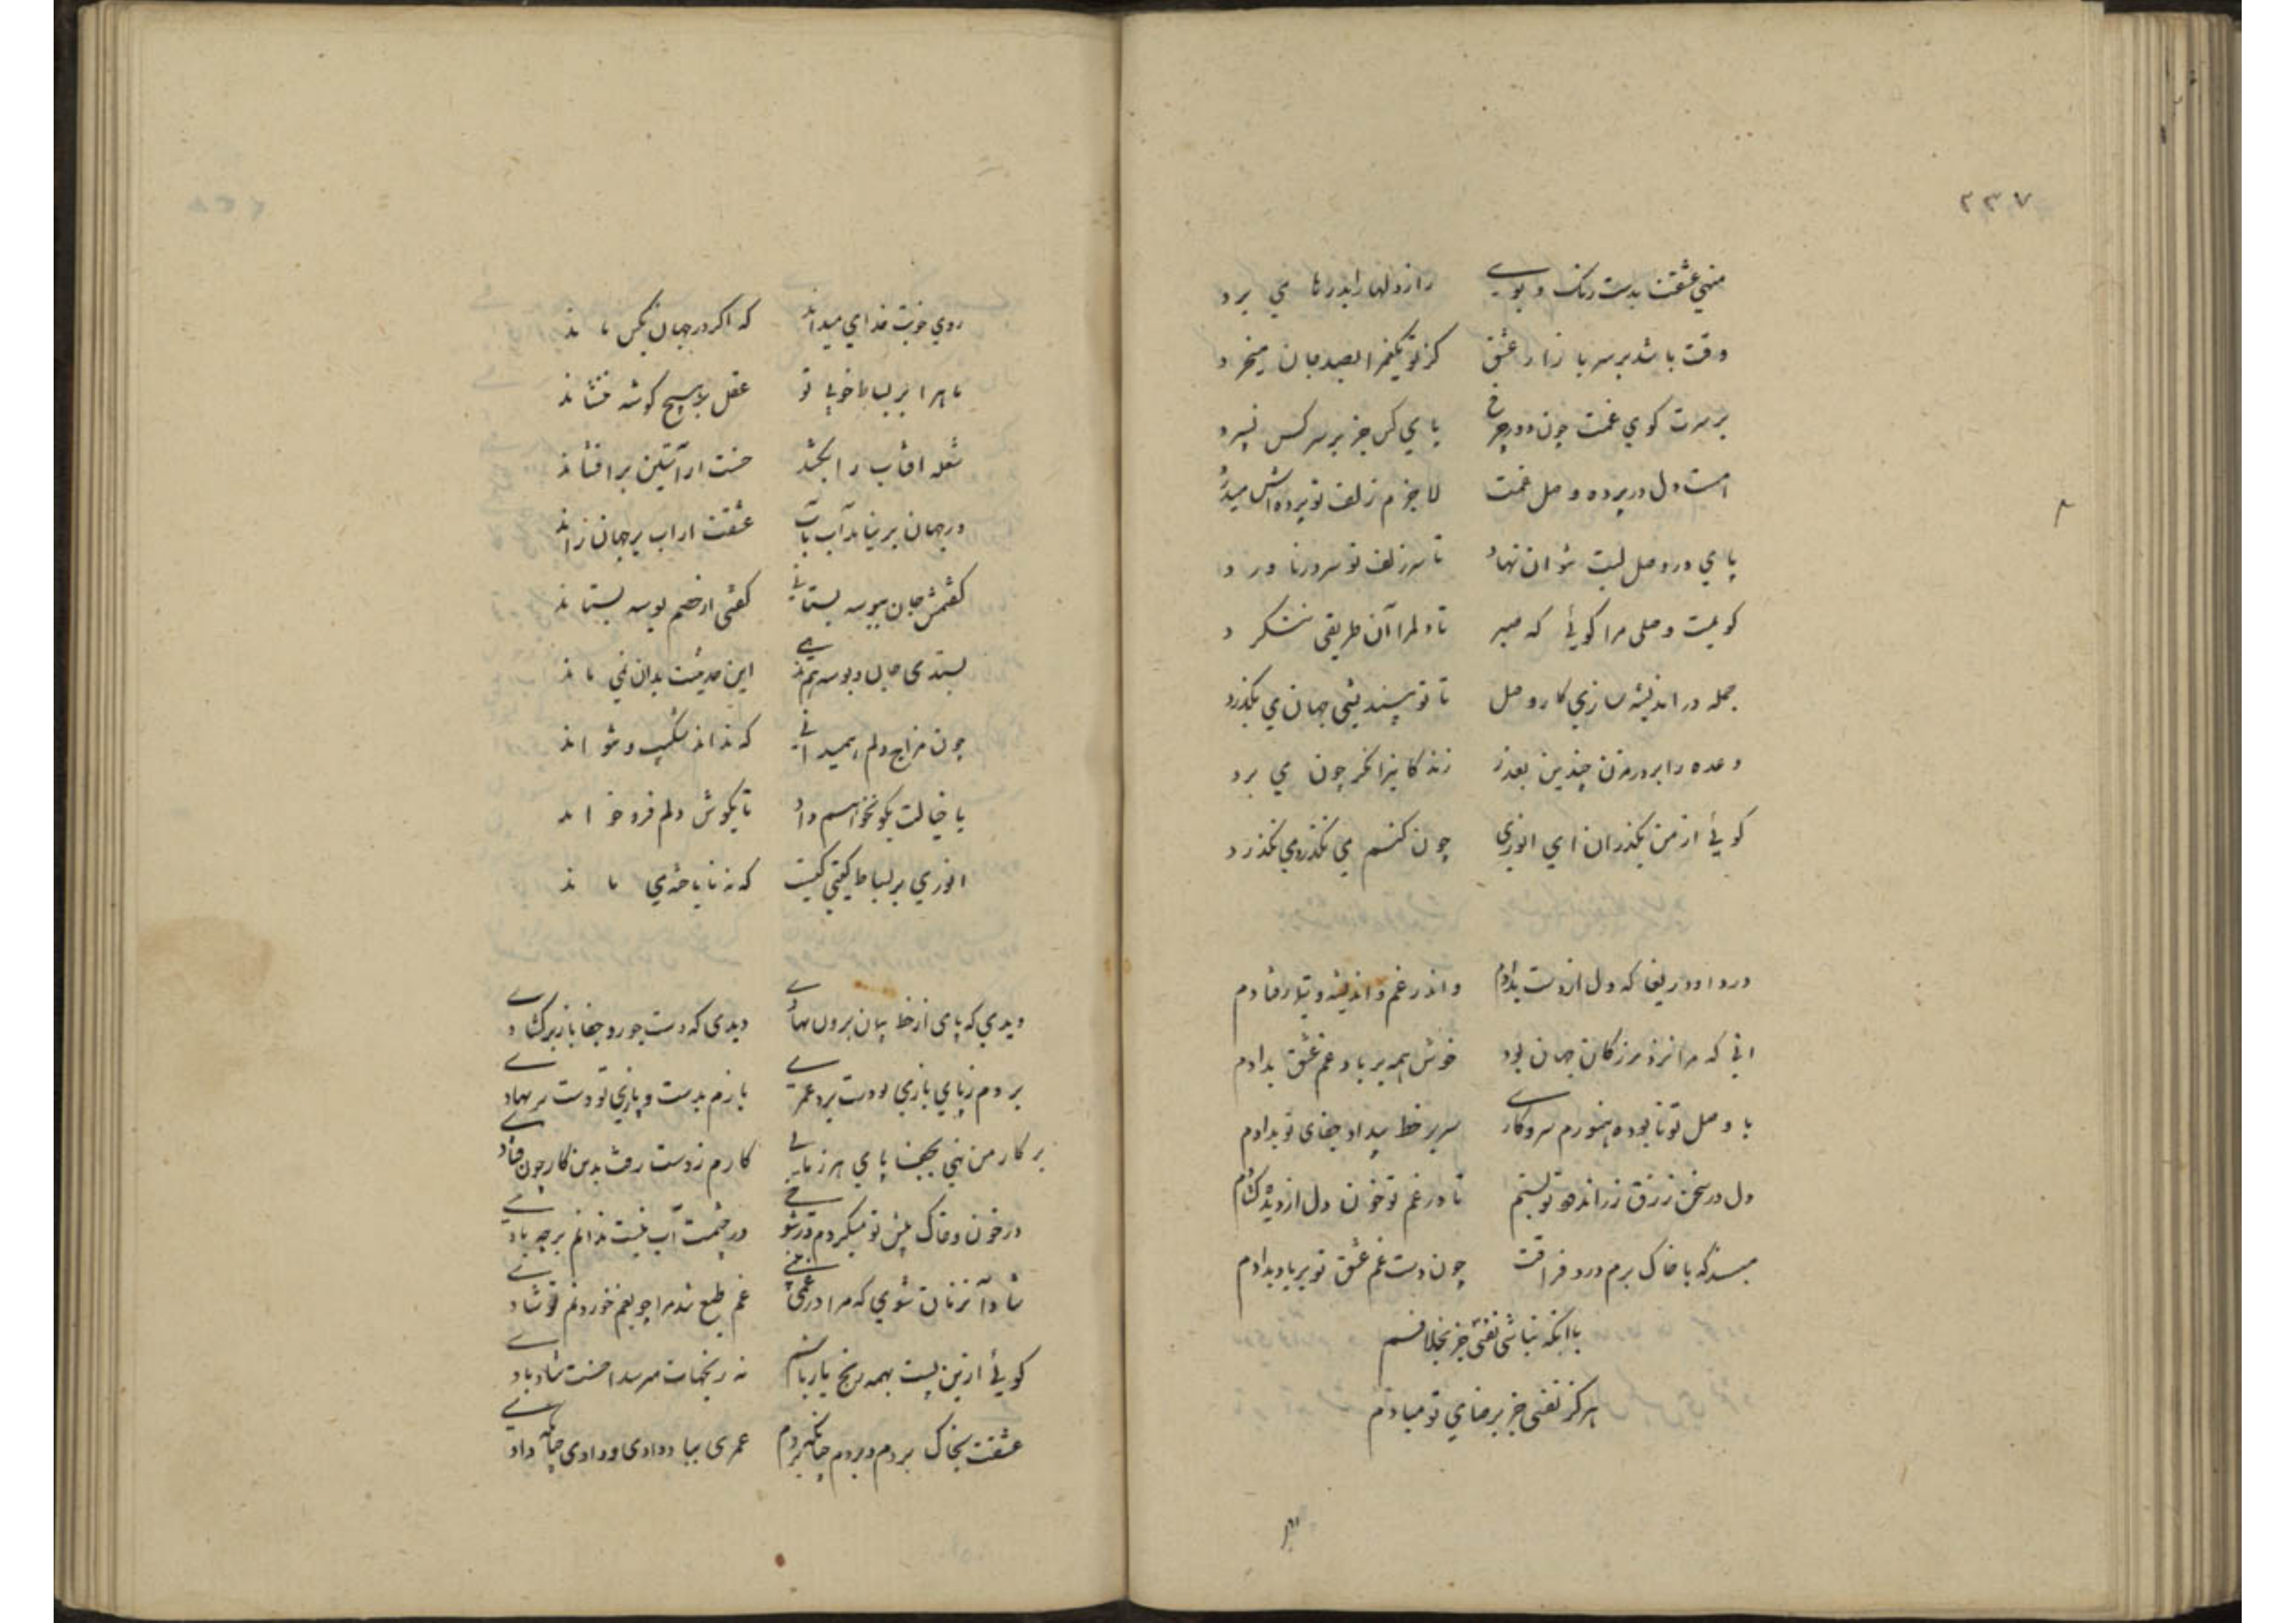 ۲۳۷
منهی عشقت بدست رنک و بوی رازدلها را بدرها می برد
وقت باشد بر سر بازار عشق کز تو یکغم را بصد جان میخرد
بر سرت کوی غمت چون دور چرخ پای کس جز بر سر کس نسپرد
است دل در پرده وصل غمت لاجرم زلف تو پرده اش میدرد
پای در وصل لبت نتوان نهاد تا سر زلف تو سر در ناورد
کویمت وصلی مرا کوئی که صبر تا دلم را آن طریقی نشکرد
جمله در اندیشه سازی کار وصل تا تو بیندیشی جهان می بکذرد
وعده را بر در مزن چندین بعذر زندکانی را نکر چون می برد
کوئی از من بکذران ای انوری چون کنم می نکذرد می نکذرد
دردا و دریغا که دل از دست بدادم واندر غم و اندیشه و تیمار فتادم
انی که مرا نزد بزرکان جهان بود خوش همه بر باد غم عشق بدادم
با وصل تو نابوده هنوزم سر و کاری سر بر خط بیداد جفای تو بدادم
دل در سخن زرق زراندود تو بستم تا در غم تو خون دل از دیده کشادم
مپسند که با خاک برم درد فراقت چون دست غم عشق تو بر باد بدادم
با انکه نباشی نفسی جز بخلافم
هرکز نفسی جز برضای تو مبادم
روی خوبت خدای میداند که اکر در جهان بکس ماند
ماه را بر بساط خوبی تو عقل بر هیچ کوشه ننشاند
شعله افتاب را بکشد حسنت ار آستین برافشاند
در جهان برنیاید آب باب عشقت ار اب بر جهان راند
کفتمش جان ببوسه بستانی کفتی ار خصم بوسه بستاند
بستدی جان و بوسه می ندهی این حدیثت بدان نمی ماند
چون مزاج دلم همیدانی که نداند شکیب و نتواند
با خیالت بکو نخواهم داد تا بکوش دلم فرو خواند
انوری بر بساط کیتی کیست که نه ناباخته می ماند
دیدی که پای از خط پیمان برون نهادی دیدی که دست جور و جفا باز برکشادی
بردم ز پای بازی و دست برد عمری بازم بدست و بازی تو دست سر نهادی
بر کار من نهی بجفا پای هر زمانی کارم ز دست رفت بدین کار چون فتادی
در خون و خاک پیش تو میکردم و ز شوخی در چشمت آب نیست ندانم بر چه بادی
شاد آنزمان شوی که مرا در غمی ببینی غم طبع شد مرا چو بغم خوردنم تو شادی
کوئی ازین پست همه رنج یار باشم نه رنجهات میرسد احسنت شاد بادی
عشقت بخاک بردم و بردم چنانکه بردم عمری بباد دادی و دادی چنانکه دادی